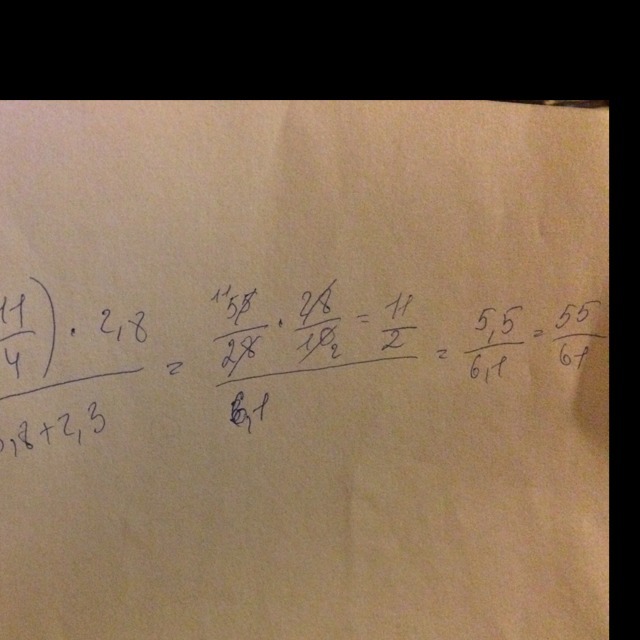 11/4) · 2,8 / ,8 + 2,3 = 11 55/28 · 28/10 2 = 11/2 / 6,1 = 5,5/6,1 = 55/61